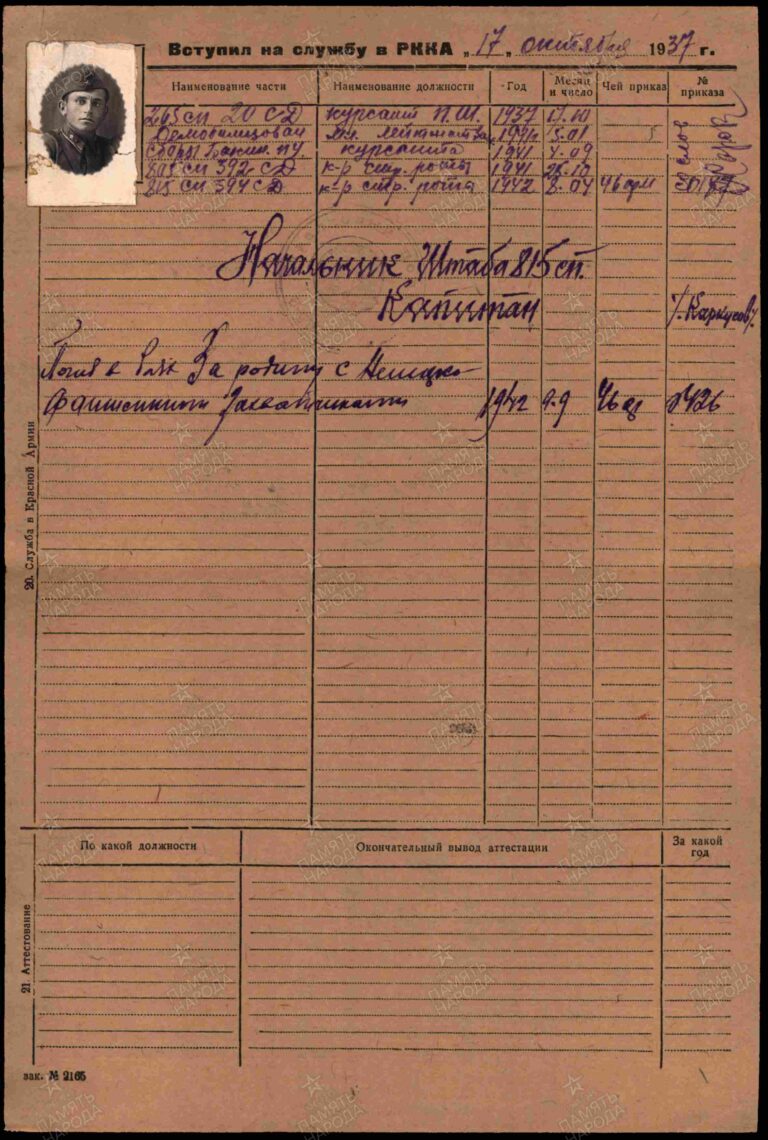 Вступил на службу в РККА „17„ октября 1937 г.
Наименование части Наименование должности Год Месяц и число Чей приказ № приказа
265 СП 20 СД курсант П.Ш. 1937 17.10
Демобилизован мл. лейтенанта 15.01
курсанта 1941 4.09
805 СП 392 СД к-р стр. роты 1941 10
815 СП 394 СД к-р стр. роты 1942 8.04 46 арм
Начальник Штаба 815 сп.
Капитан
Погиб в За родину с Немецко
фашистскими Захватчиками 1942 9-9 0426
20. Служба в Красной Армии
По какой должности Окончательный вывод аттестации За какой год
21. Аттестование
зак. № 2165
ПАМЯТЬ НАРОДА